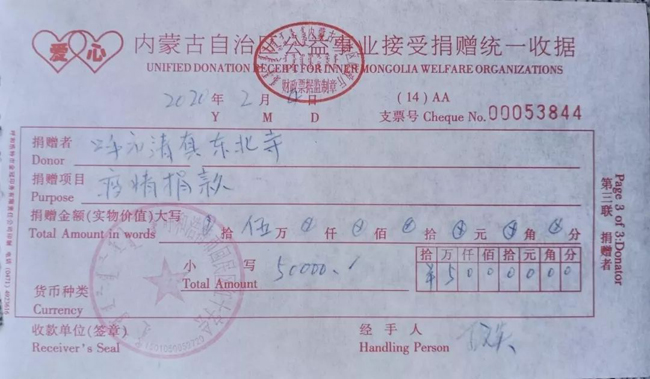 爱心 内蒙古自治区公益事业接受捐赠统一收据
UNIFIED DONATION RECEIPT FOR INNER MONGOLIA WELFARE ORGANIZATIONS
财政票据监制章
2020 年 2 月 日 (14) AA
Y M D 支票号 Cheque No. 00053844
捐赠者 清真东北寺
Donor
捐赠项目 疫情捐款
Purpose
捐赠金额(实物价值)大写 拾 伍 万 仟 佰 拾 元 角 分
Total Amount in words
小 写 50000.
Total Amount
拾 万 仟 佰 拾 元 角 分
¥ 5 0 0 0 0 0 0
货币种类
Currency
收款单位(签章) 经 手 人
Receiver's Seal Handling Person
Page 3 of 3:Donator
第三联 捐赠者